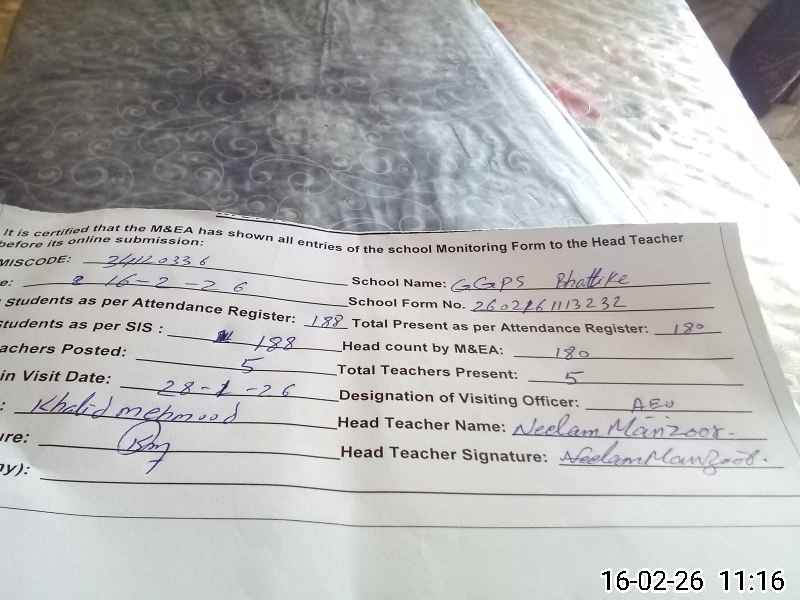 It is certified that the M&EA has shown all entries of the school Monitoring Form to the Head Teacher
before its online submission:
MISCODE: 34120336 School Name: GGPS Bhattike
e: 16-2-26 School Form No. 2602161113232
Students as per Attendance Register: 188 Total Present as per Attendance Register: 180
tudents as per SIS : 188 Head count by M&EA: 180
achers Posted: 5 Total Teachers Present: 5
in Visit Date: 28-1-26 Designation of Visiting Officer: AEO
: Khalid mehmood Head Teacher Name: Neelam Manzoor.
ure: Head Teacher Signature: Neelam Manzoor.
ny):
16-02-26 11:16